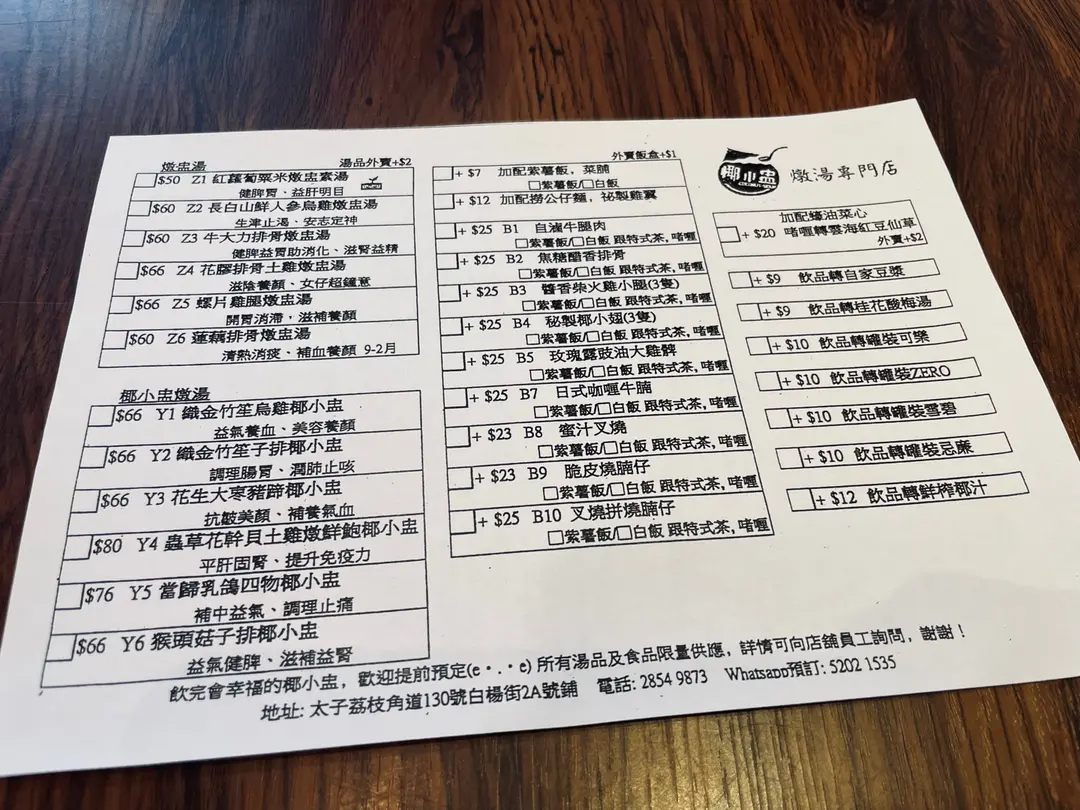 燉盅湯 湯品外賣+$2
$50 Z1 紅蘿蔔粟米燉盅素湯
健脾胃、益肝明目
$60 Z2 長白山鮮人參烏雞燉盅湯
生津止渴、安志定神
$60 Z3 牛大力排骨燉盅湯
健脾益腎助消化、滋腎益精
$66 Z4 花膠排骨土雞燉盅湯
滋陰養顏、女仔超鐘意
$66 Z5 螺片雞腿燉盅湯
開胃消滯，滋補養顏
$60 Z6 蓮藕排骨燉盅湯
清熱消痰、補血養顏 9-2月
椰小盅燉湯
$66 Y1 織金竹笙烏雞椰小盅
益氣養血、美容養顏
$66 Y2 織金竹笙子排椰小盅
調理腸胃、潤肺止咳
$66 Y3 花生大棗豬蹄椰小盅
抗皺美顏、補養氣血
$80 Y4 蟲草花幹貝土雞燉鮮鮑椰小盅
平肝固腎、提升免疫力
$76 Y5 當歸乳鴿四物椰小盅
補中益氣、調理止痛
$66 Y6 猴頭菇子排椰小盅
益氣健脾、滋補益腎
外賣飯盒+$1
+ $7 加配紫薯飯，菜脯
□紫薯飯/□白飯
+ $12 加配撈公仔麵，祕製雞翼
+ $25 B1 自滷牛腿肉
□紫薯飯/□白飯 跟特式茶，啫喱
+ $25 B2 焦糖醋香排骨
□紫薯飯/□白飯 跟特式茶，啫喱
+ $25 B3 醬香柴火雞小腿(3隻)
□紫薯飯/□白飯 跟特式茶，啫喱
+ $25 B4 秘製椰小翅(3隻)
□紫薯飯/□白飯 跟特式茶，啫喱
+ $25 B5 玫瑰露豉油大雞髀
□紫薯飯/□白飯 跟特式茶，啫喱
+ $25 B7 日式咖喱牛腩
□紫薯飯/□白飯 跟特式茶，啫喱
+ $23 B8 蜜汁叉燒
□紫薯飯/□白飯 跟特式茶，啫喱
+ $23 B9 脆皮燒腩仔
□紫薯飯/□白飯 跟特式茶，啫喱
+ $25 B10 叉燒拼燒腩仔
□紫薯飯/□白飯 跟特式茶，啫喱
椰小盅 燉湯專門店
加配蠔油菜心
+ $20 啫喱轉雲海紅豆仙草
外賣+$2
+ $9 飲品轉自家豆漿
+ $9 飲品轉桂花酸梅湯
+ $10 飲品轉罐裝可樂
+ $10 飲品轉罐裝ZERO
+ $10 飲品轉罐裝雪碧
+ $10 飲品轉罐裝忌廉
+ $12 飲品轉鮮榨椰汁
飲完會幸福的椰小盅，歡迎提前預定(e・.・e) 所有湯品及食品限量供應，詳情可向店舖員工詢問，謝謝！
地址: 太子荔枝角道130號白楊街2A號鋪 電話: 2854 9873 Whatsapp預訂: 5202 1535